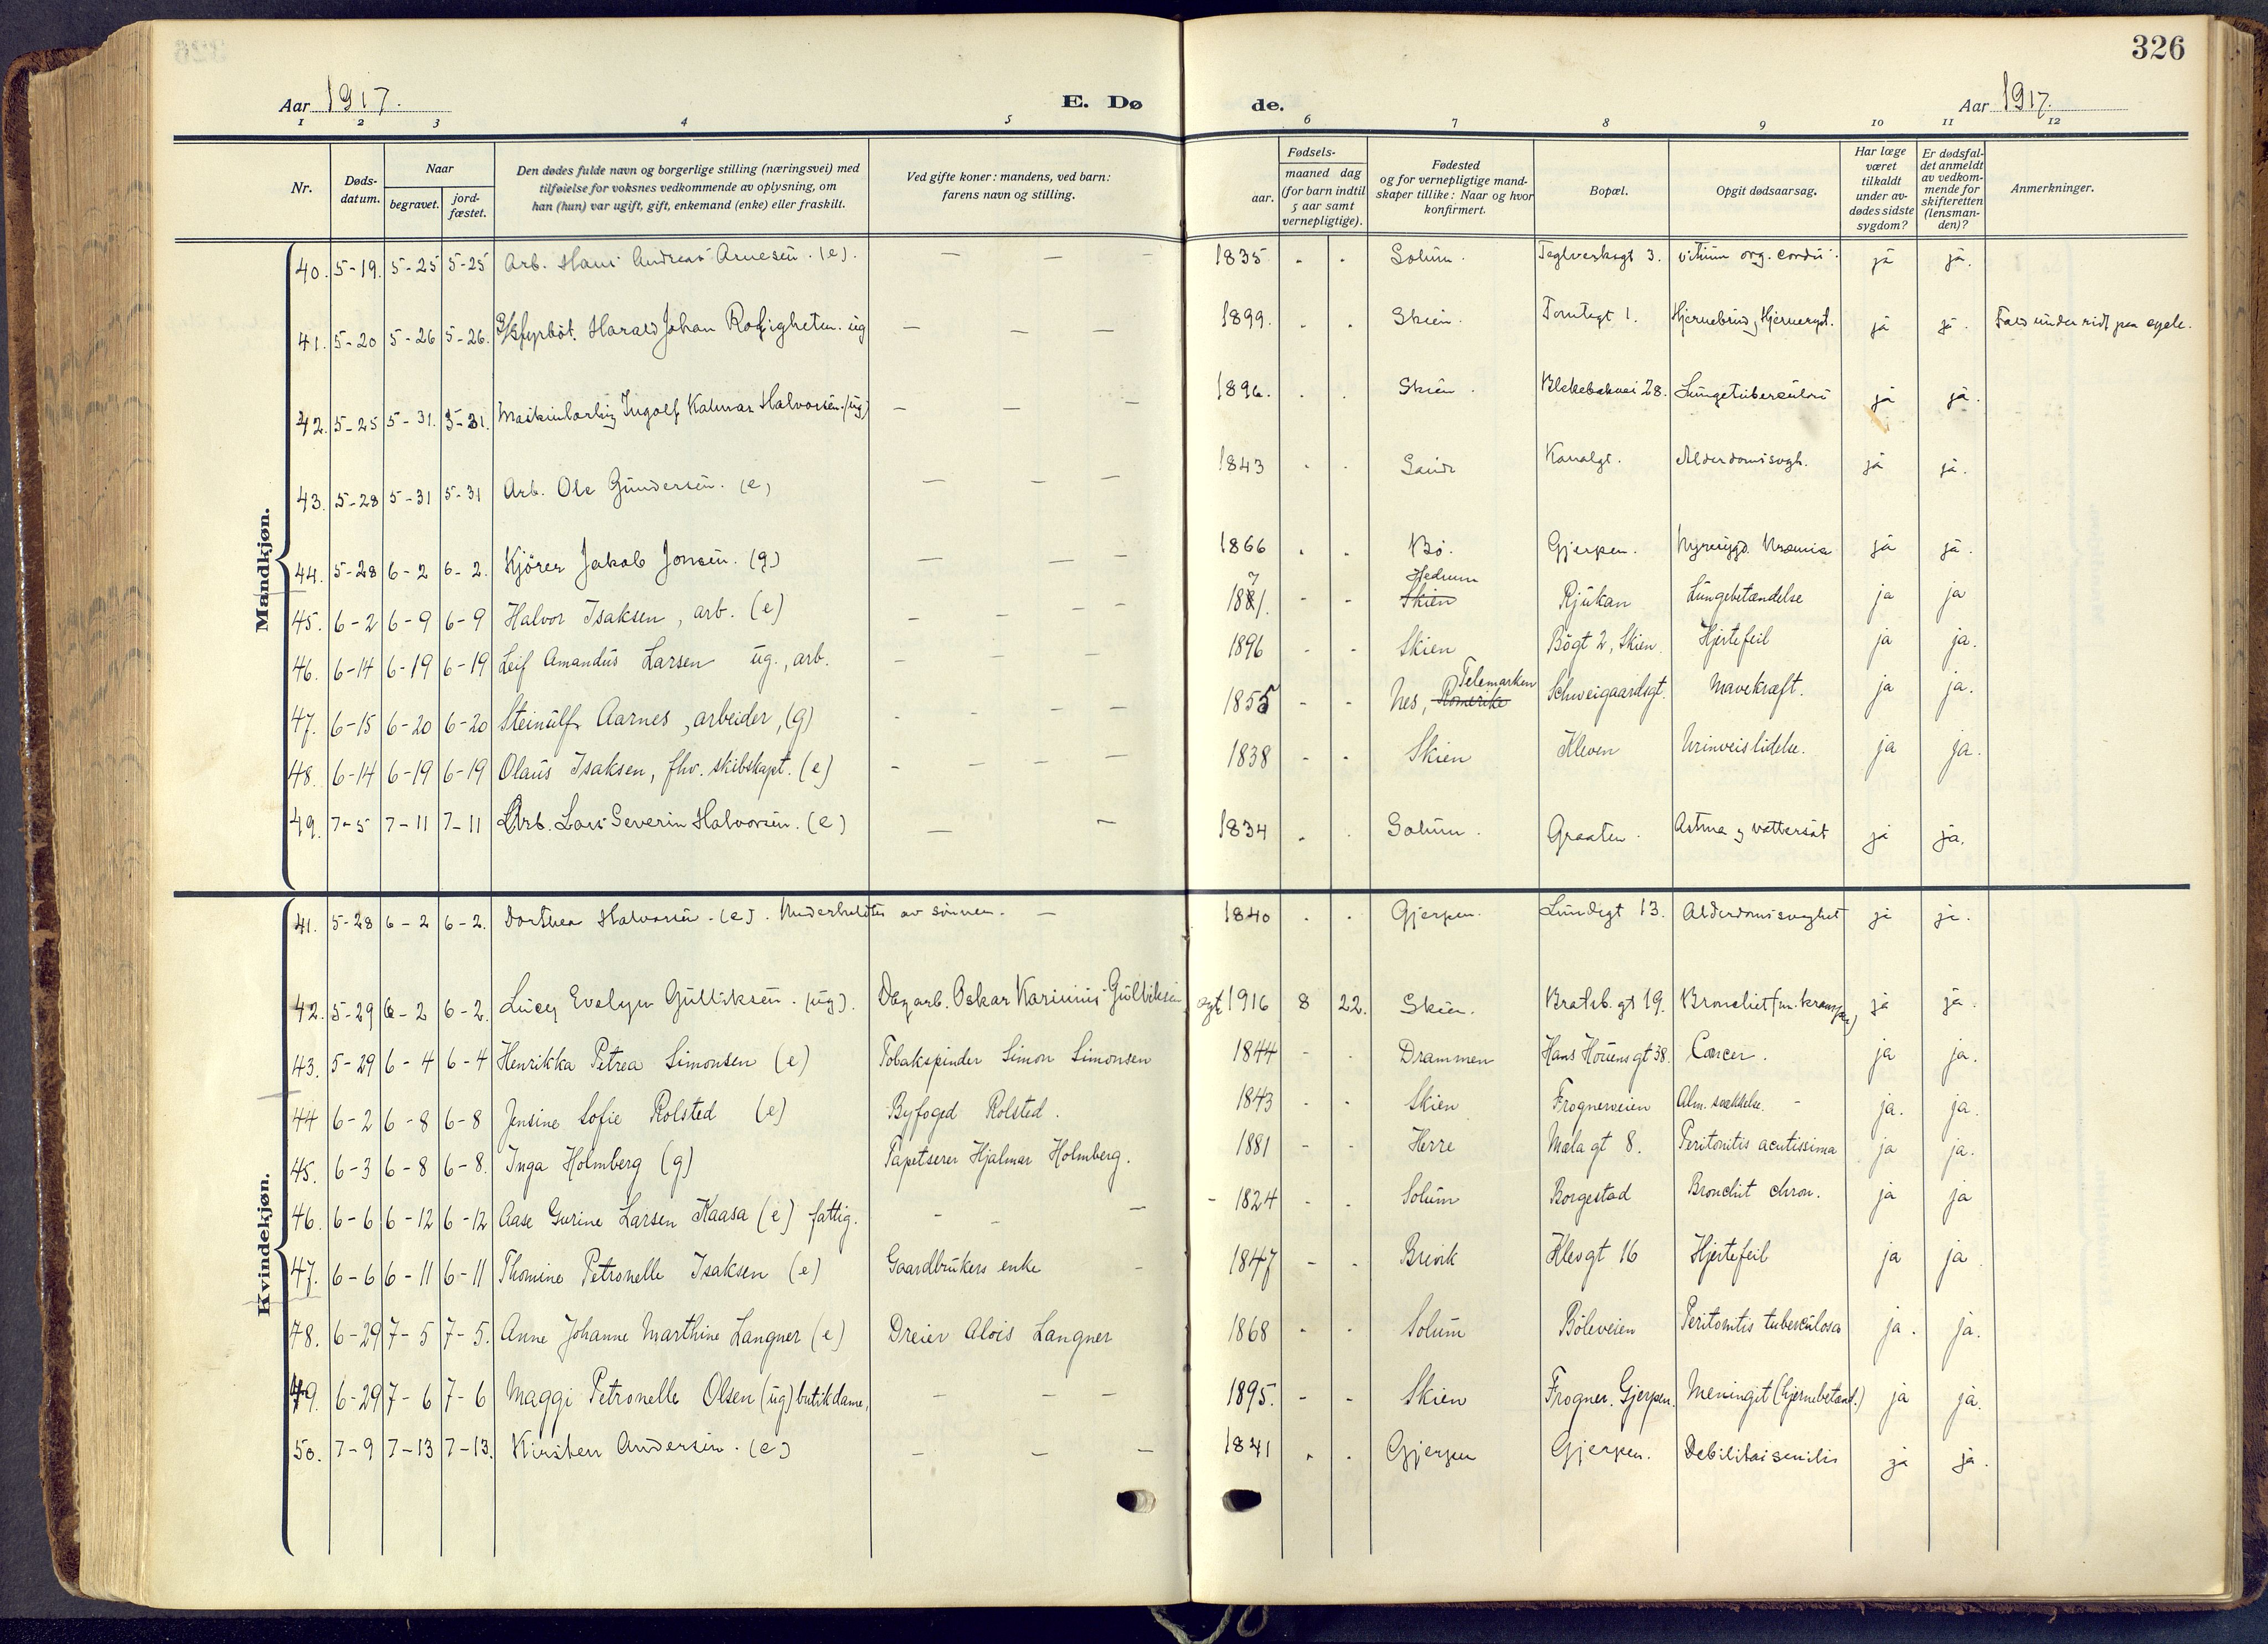 326
Aar 1917. E. Døde. Aar 1917.
1 2 3 4 5 6 7 8 9 10 11 12
Nr. Døds-datum. Naar begravet. jord-fæstet. Den dødes fulde navn og borgerlige stilling (næringsvei) med tilføielse for voksnes vedkommende av oplysning, om han (hun) var ugift, gift, enkemand (enke) eller fraskilt. Ved gifte koner: mandens, ved barn: farens navn og stilling. Fødsels- aar. maaned dag (for barn indtil 5 aar samt vernepligtige). Fødested og for vernepligtige mand-skaper tillike: Naar og hvor konfirmert. Bopæl. Opgit dødsaarsag. Har læge været tilkaldt under av-dødes sidste sygdom? Er dødsfal-det anmeldt av vedkom-mende for skifteretten (lensman-den)? Anmerkninger.
Mandkjøn.
40. 5-19. 5-25 5-25 Arb. Hans Andreas Arnesen. (e). — — — 1835 - - Solum. Teglverksgt 3. vitium org. cordis. ja ja.
41. 5-20 5-26 5-26. Harald Johan ug — — — 1899. - - Skien. Tomtegt 1. ja ja. Fald under ridt paa cycle.
42. 5-25 5-31. 5-31. Maskinlærling Ingolf Kalmar Halvorsen. (ug) — — — 1896. - - Skien. Blekebakvei 28. Lungetuberculose ja ja.
43. 5-28 5-31 5-31 Arb. Ole Gundersen. (e) — — — 1843 - - Kanalgt. Alderdomssvagh. ja ja.
44. 5-28 6-2 6-2. Kjører Jakob Jonsen. (g) — — — 1866 - - Bø. Gjerpen. Nyresygd. Uræmia ja ja.
45. 6-2 6-9 6-9 Halvor Isaksen, arb. (e) - - - - 1871. - - Skien Hedrum Rjukan Lungebetændelse ja ja
46. 6-14 6-19 6-19 Leif Amandus Larsen ug., arb. - - - 1896 - - Skien Bøgt 2, Skien. Hjertefeil ja ja.
47. 6-15 6-20 6-20 Steinulf Aarnes, arbeider, (g) - - - - 1855 - - Nes, Romerike Telemarken Schweigaardsgt. Mavekræft. ja ja.
48. 6-14 6-19 6-19 Olaus Isaksen, fhv. skibskapt. (e) - - - - 1838 - - Skien Kleven Urinveislidelse. ja ja.
49. 7-5 7-11 7-11 Arb. Lars Severin Halvorsen. (e) — — 1834 - - Solum. Graaten. Astma og vattersot ja ja.
Kvindekjøn.
41. 5-28 6-2 6-2. Dorthea Halvorsen. (e). Underholdtes av sønnen. — 1840 - - Gjerpen. Lundegt 13. Alderdomssvaghet ja ja.
42. 5-29 6-2 6-2. Lucy Evelyn Gulliksen. (ug). Dagarb. Oskar Karinius Gulliksen 1916 8 22. Skien. Bratsb. gt 19. Bronchiet (m. kramper) ja ja.
43. 5-29 6-4 6-4 Henrikka Petrea Simonsen (e) Tobakspinder Simon Simonsen 1844 - - Drammen Hans Houens gt 38. Cancer. ja ja.
44 6-2 6-8 6-8 Jensine Sofie Rolsted (e) Byfoged Rolsted. 1843 - - Skien Frogneveien Alm. svækkelse. - ja. ja.
45. 6-3 6-8 6-8. Inga Holmberg (g) Tapetserer Hjalmar Holmberg. 1881 - - Herre Mæla gt 8. Peritonitis acutissima ja ja.
46. 6-6 6-12 6-12 Aase Gurine Larsen Kaasa (e) fattig. - - - 1824 - - Solum Borgestad Bronchit chron. ja ja
47. 6-6 6-11 6-11 Thomine Petronelle Isaksen (e) Gaardbrukers enke - 1847 - - Brevik Klevgt 16 Hjertefeil ja ja
48. 6-29 7-5 7-5. Anne Johanne Marthine Langner (e) Dreier Alois Langner 1868 - - Solum Bøleveien Peritonitis tuberculosa ja. ja.
49. 6-29 7-6 7-6 Maggi Petronelle Olsen (ug) butikdame, - - - 1895. - - Skien Frogner. Gjerpen. Meningit (hjernebetænd.) ja ja.
50. 7-9 7-13 7-13. Kirsten Andersen. (e) — — — 1841 - - Gjerpen Gjerpen. Debilitas senilis ja ja.